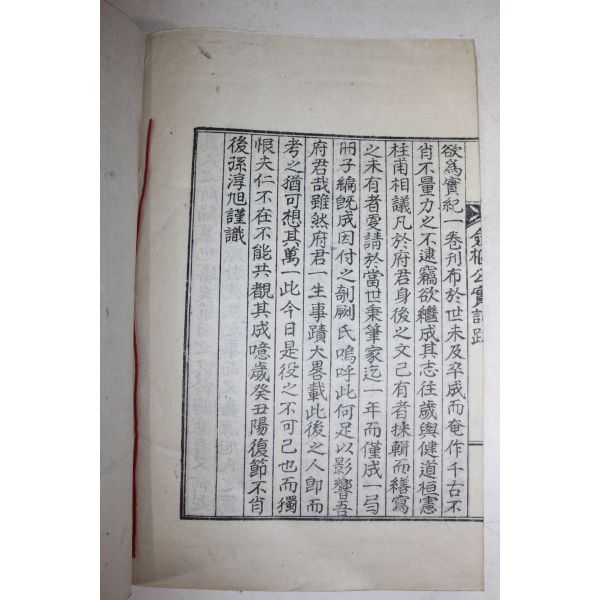 欲爲實紀一卷刊布於世未及卒成而奄作千古不
肖不量力之不逮竊欲繼成其志往歲與健道桓憲
柱甫相議凡於府君身後之文已有者採輯而繕寫
之未有者爰請於當世秉筆家迄一年而僅成一
冊子編旣成因付之剞劂氏嗚呼此何足以影響吾
府君哉雖然府君一生事蹟大畧載此後之人卽而
考之猶可想其萬一此今日是役之不可已也而獨
恨夫仁不在不能共觀其成噫歲癸丑陽復節不肖
後孫淳旭謹識
公實記跋